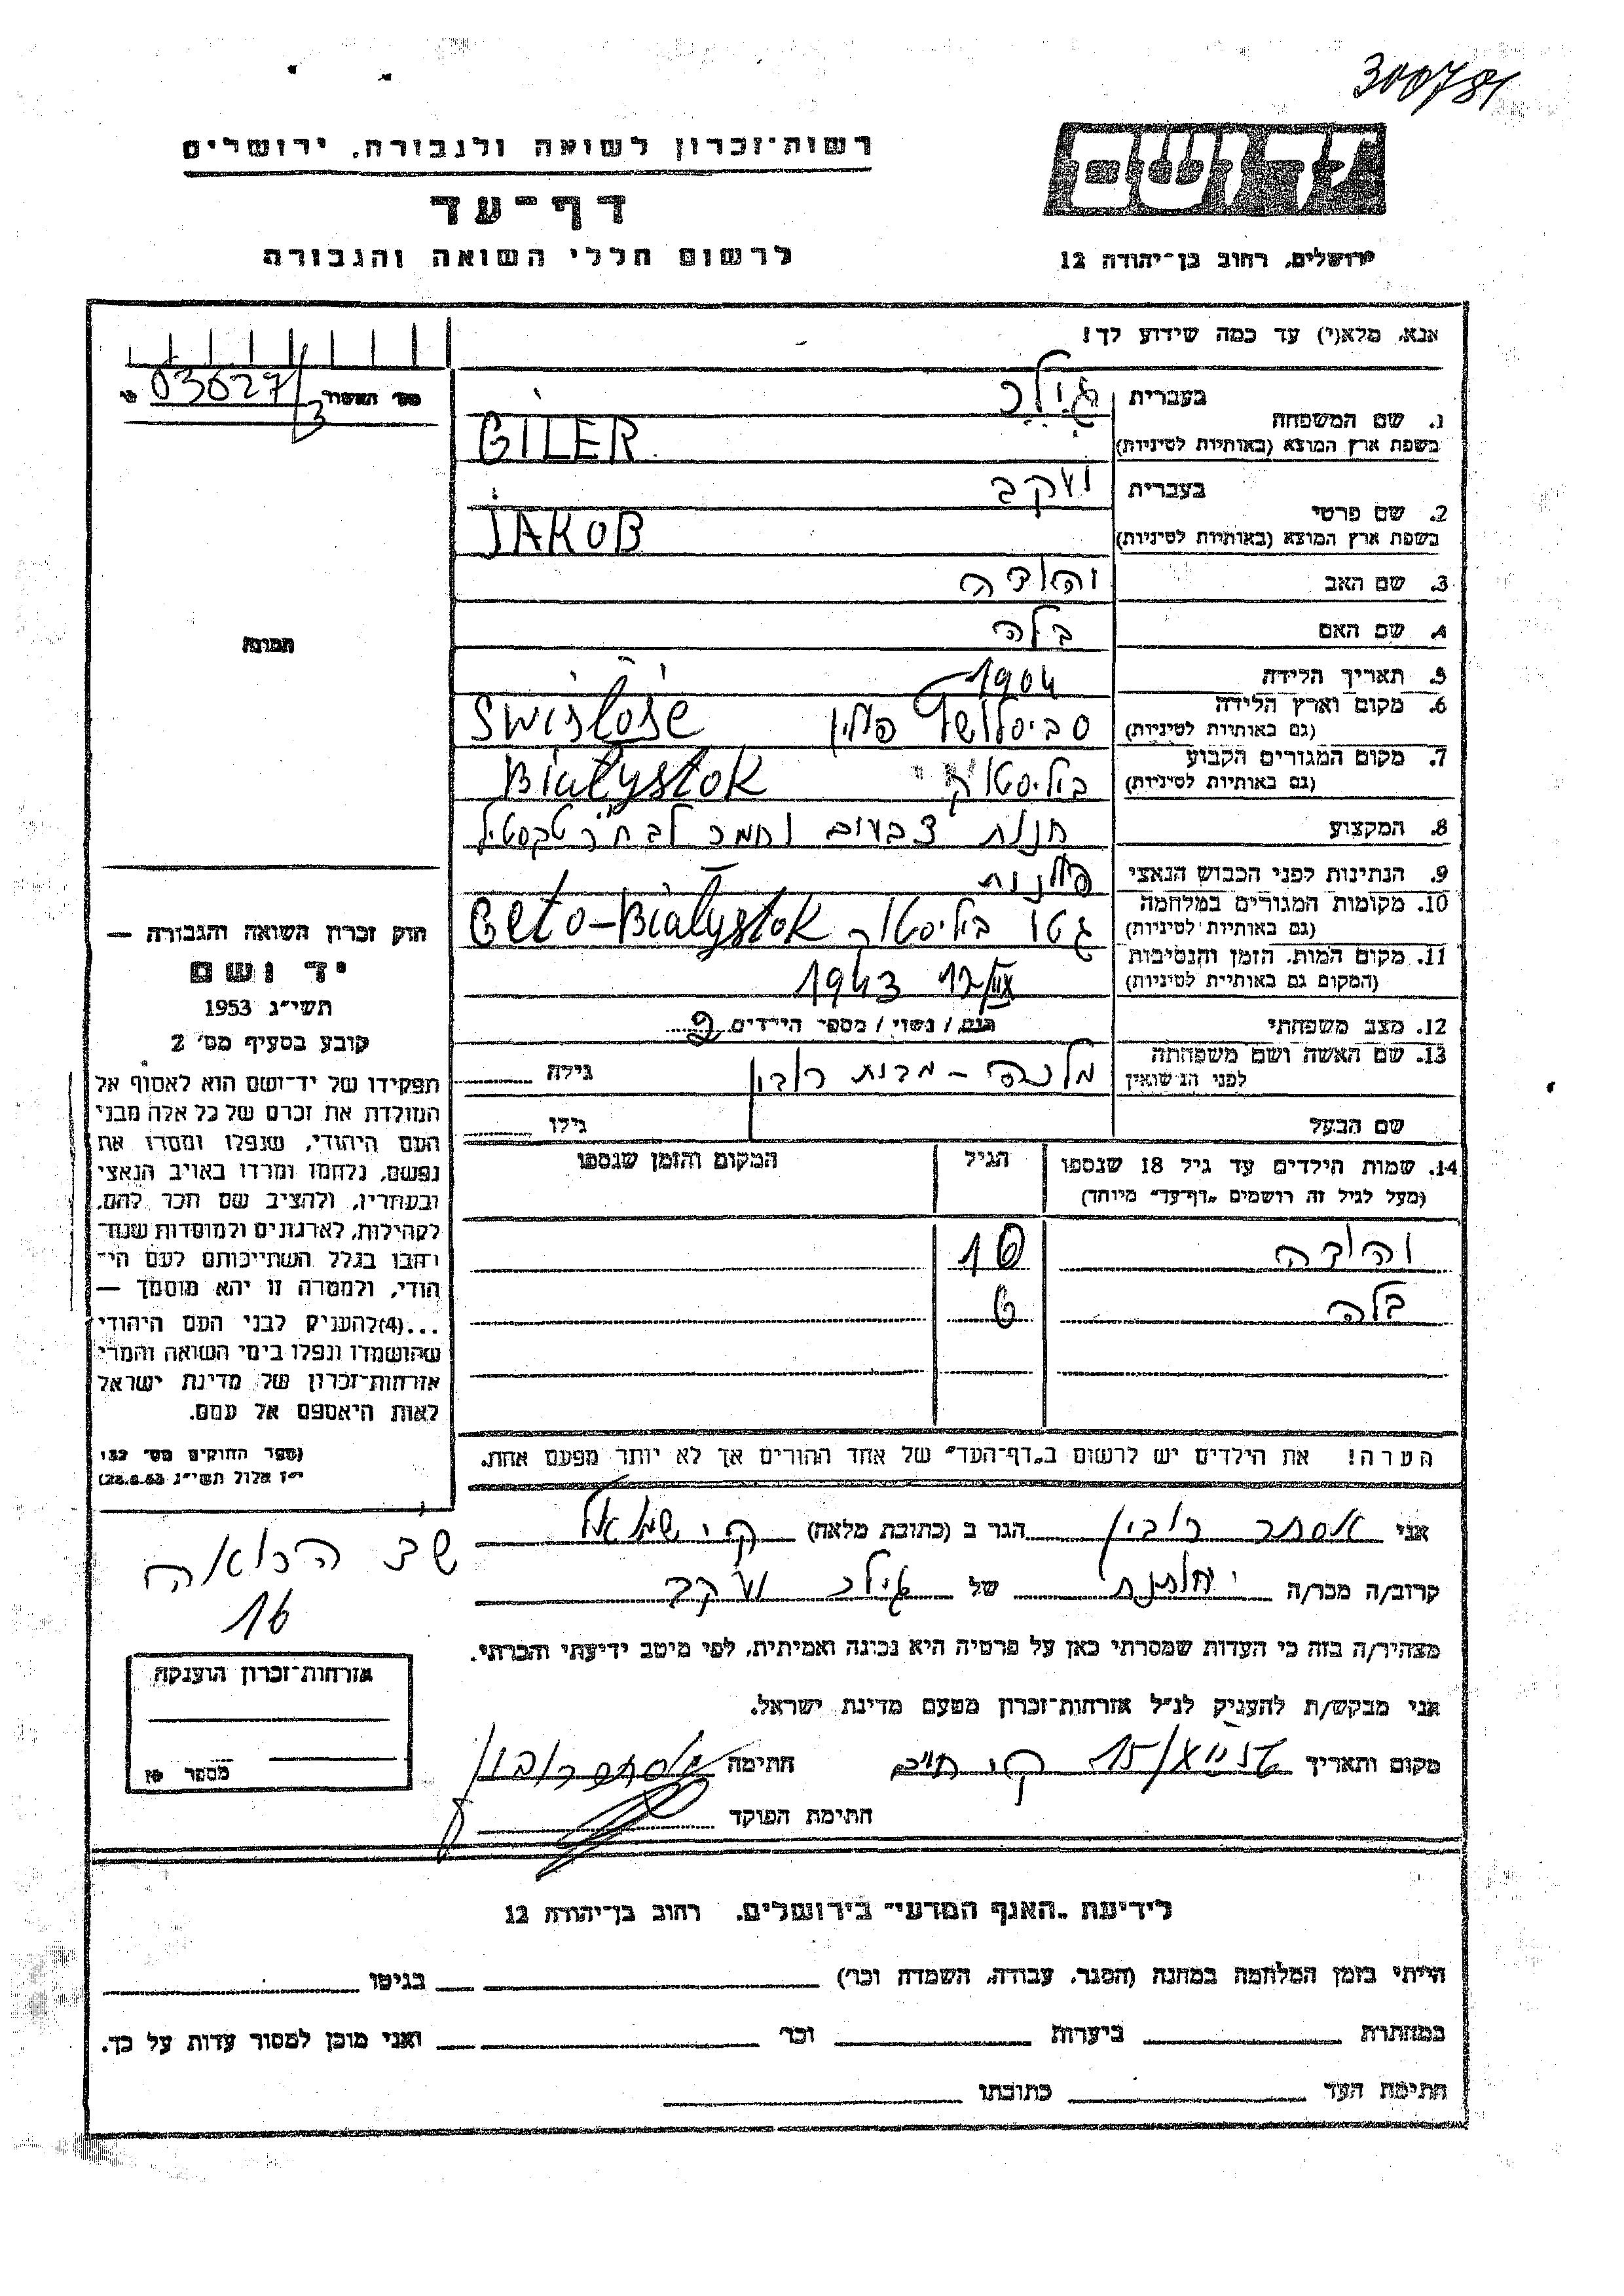 300781
רשות־זכרון לשואה ולגבורה, ירושלים
דף־עד
לרשום חללי השואה והגבורה
יד ושם
ירושלים, רחוב בן־יהודה 12
אנא, מלא(י) עד כמה שידוע לך!
מס׳ האשור 03627/3
1. שם המשפחה בעברית גילר
בשפת ארץ המוצא (באותיות לטיניות) GILER
2. שם פרטי בעברית יעקב
בשפת ארץ המוצא (באותיות לטיניות) JAKOB
3. שם האב יהודה
4. שם האם בלה
5. תאריך הלידה 1904
6. מקום וארץ הלידה
(גם באותיות לטיניות) פולין Swisłosc
7. מקום המגורים הקבוע
(גם באותיות לטיניות) Białystok
8. המקצוע חנות צבעים וחמר לבח״ר טקסטיל
9. הנתינות לפני הכבוש הנאצי פולנית
10. מקומות המגורים במלחמה
(גם באותיות לטיניות) גטו Geto-Białystok
11. מקום המות, הזמן והנסיבות
(המקום גם באותיות לטיניות) 1943
12. מצב משפחתי רווק / נשוי / מספר הילדים 2
13. שם האשה ושם משפחתה
לפני הנישואין מבית רובין גילה
שם הבעל גילו
14. שמות הילדים עד גיל 18 שנספו הגיל המקום והזמן שנספו
(מעל לגיל זה רושמים „דף־עד״ מיוחד)
יהודה 10
בלה 6
הערה! את הילדים יש לרשום ב„דף־העד״ של אחד ההורים אך לא יותר מפעם אחת.
תמונה
חוק זכרון השואה והגבורה —
יד ושם
תשי״ג 1953
קובע בסעיף מס׳ 2
תפקידו של יד־ושם הוא לאסוף אל
המולדת את זכרם של כל אלה מבני
העם היהודי, שנפלו ומסרו את
נפשם, נלחמו ומרדו באויב הנאצי
ובעוזריו, ולהציב שם וזכר להם,
לקהילות, לארגונים ולמוסדות שנח־
רבו בגלל השתייכותם לעם הי־
הודי, ולמטרה זו יהא מוסמך —
...(4)להעניק לבני העם היהודי
שהושמדו ונפלו בימי השואה והמרי
אזרחות־זכרון של מדינת ישראל
לאות היאספם אל עמם.
(ספר החוקים מס׳ 132
י״ז אלול תשי״ג 28.8.53)
אני אסתר רובין הגר ב (כתובת מלאה)
קרוב/ה מכר/ה של גילר יעקב
מצהיר/ה בזה כי העדות שמסרתי כאן על פרטיה היא נכונה ואמיתית, לפי מיטב ידיעתי והכרתי.
אני מבקש/ת להעניק לנ״ל אזרחות־זכרון מטעם מדינת ישראל.
מקום ותאריך חתימה אסתר רובין
חתימת הפוקד
16
אזרחות־זכרון הוענקה
מספר
לידיעת „האגף המדעי״ בירושלים, רחוב בן־יהודה 12
הייתי בזמן המלחמה במחנה (הסגר, עבודה, השמדה וכו׳) בגיטו
במחתרת ביערות וכו׳ ואני מוכן למסור עדות על כך.
חתימת העד כתובתו